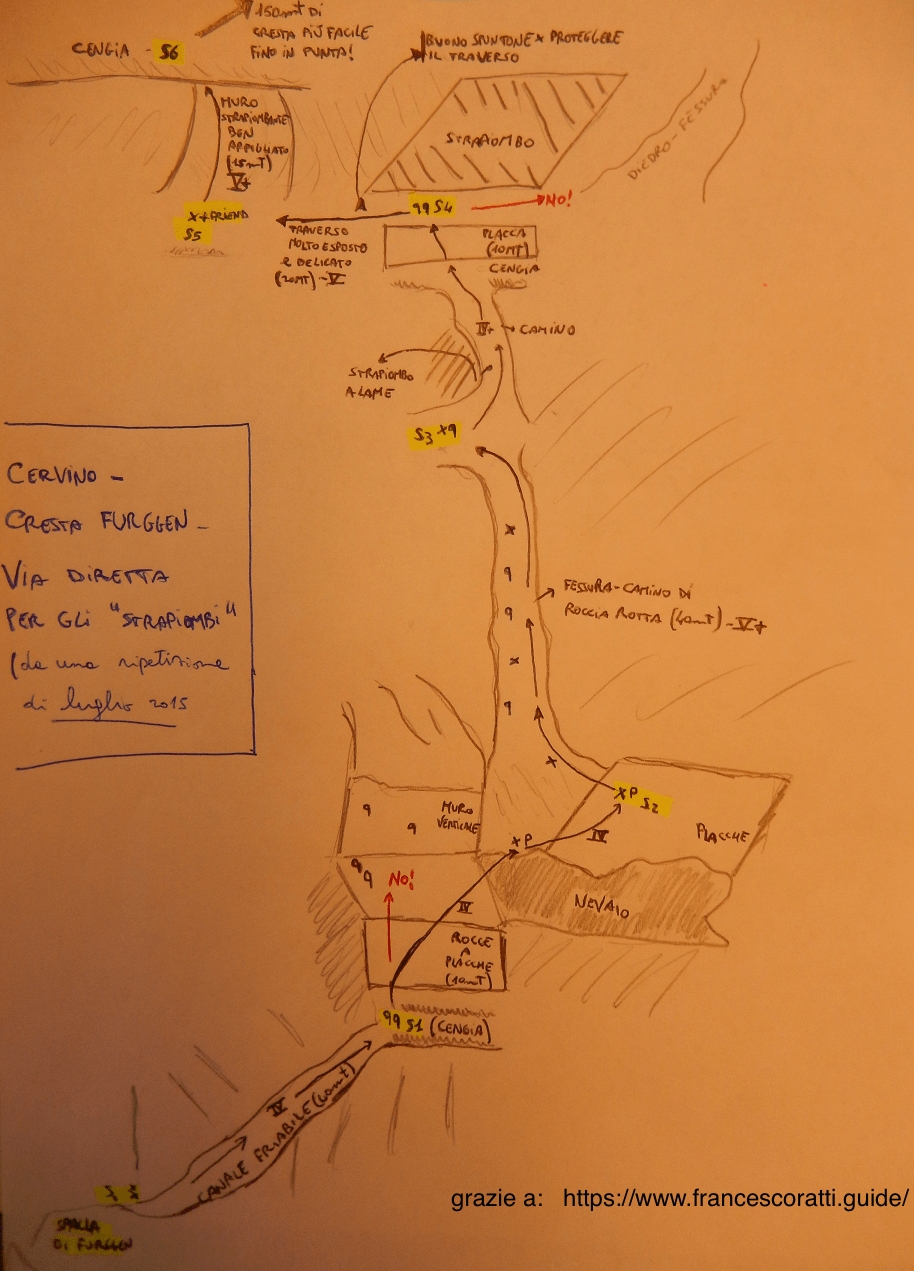 150mt DI
CRESTA PIÙ FACILE
FINO IN PUNTA!
CENGIA - S6
BUONO SPUNTONE x PROTEGGERE
IL TRAVERSO
MURO
STRAPIOMBANTE
BEN
APPIGLIATO
(15mT)
V+
STRAPIOMBO
DIEDRO-FESSURA
X+FRIEND
S5
99 S4
NO!
TRAVERSO
MOLTO ESPOSTO
E DELICATO
(20MT)-V
PLACCA
(10MT)
CENGIA
IV+ → CAMINO
STRAPIOMBO
A LAME
S3 x9
CERVINO -
CRESTA FURGGEN -
VIA DIRETTA
PER GLI "STRAPIOMBI"
(da una ripetizione
di luglio 2015
x
9
9
x
9
x
FESSURA-CAMINO DI
ROCCIA ROTTA (40mT)-V+
xP S2
PLACCHE
9
9
MURO
VERTICALE
xP
IV
99
NO!
IV
NEVAIO
ROCCE
A
PLACCHE
(10mT)
99 S1 (CENGIA)
IV
CANALE FRIABILE (40mt)
SPALLA
DI FURGGEN
grazie a: https://www.francescoratti.guide/